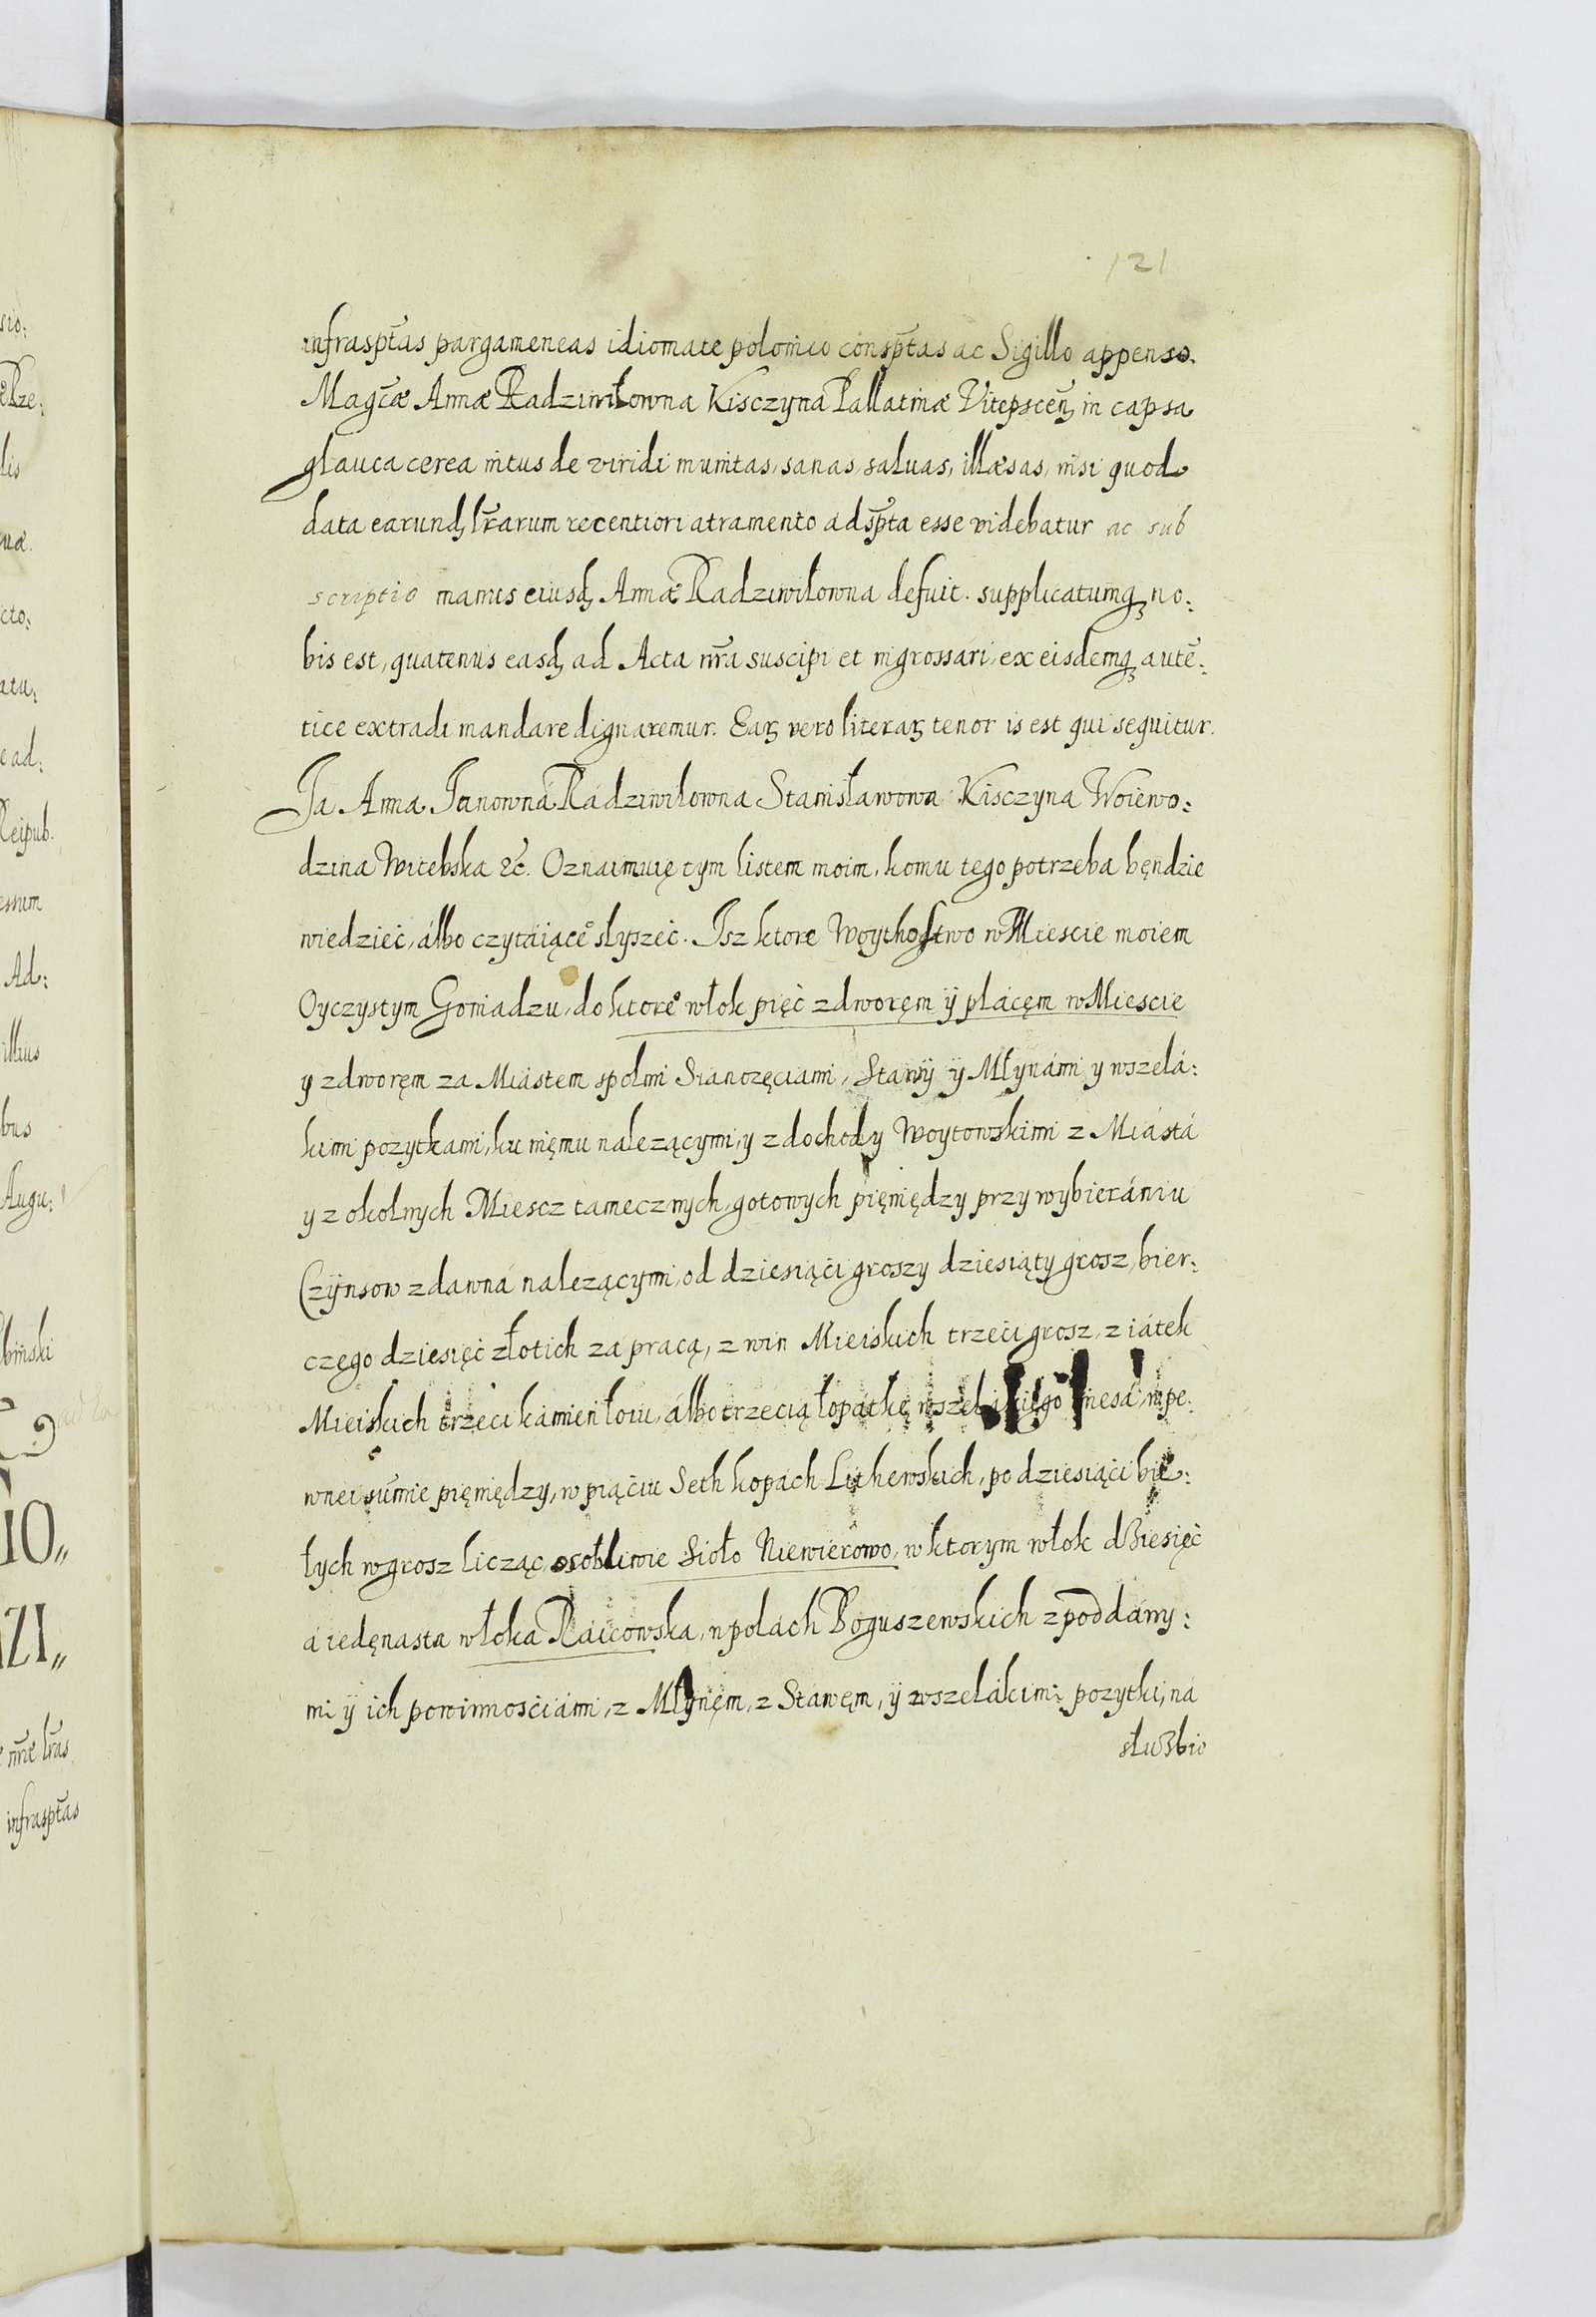 121
infrasptas pargameneas idiomate polonico consptas ac Sigillo appenso
Magcæ Annæ Radziwiłowna Kisczyna Pallatinæ Vitepscen, in capsa
glauca cerea intus de viridi munitas, sanas, saluas, illæsas, nisi quod
data earundꝫ lrarum recentiori atramento adspta esse videbatur ac sub
scriptio manus eiusdꝫ Annæ Radziwiłowna defuit. supplicatumqꝫ no:
bis est, quatenus easdꝫ ad Acta nra suscipi et ingrossari, ex eisdemqꝫ autē:
tice extradi mandare dignaremur. Eaꝝ vero literaꝝ tenor is est qui sequitur.
Ja Anna Janowná Rádziwiłowna Stanisławowa Kisczyna Woiewo:
dzina Witebska &c. Oznaimuię tym listem moim, komu tego potrzeba będzie
wiedzieć, álbo czytáiące° słyszeć. Isz ktore Woythostwo w Miescie moiem
Oyczystym Goniadzu, do ktore° włok pięć z dworęm ÿ plácęm w Miescie
y z dworęm za Miástem społni Sianożęciami, Stawÿ ÿ Młynámi y wszelá:
kimi pozytkami, ku nięmu nalezącymi, y z dochody Woytowskimi z Miástá
y z okolnych Miescz tamecznych, gotowych pięniędzy przy wybierániu
Czÿnsow z dawná nalezącymi, od dziesiąći groszy dziesiąty grosz, bier:
czego dziesięć złotich za pracą, z win Mieiskich trzeci grosz, z iátek
Mieiskich trzeci kámień łoiu, álbo trzecią łopatkę wszelákiego mięsá, w pe:
wnei summie pięniędzy, w piąćiu Seth kopach Lithewskich, po dziesiąći bie:
łych w grosz licząc, osobliwie Sioło Niewierowo, w ktorym włok dziesięć
á iedęnasta włoka Raicowska, w polach Boguszewskich z poddány:
mi ÿ ich powinnosciámi, z Młynęm, z Stawęm, ÿ wszelákimi pozytki, ná
służbie